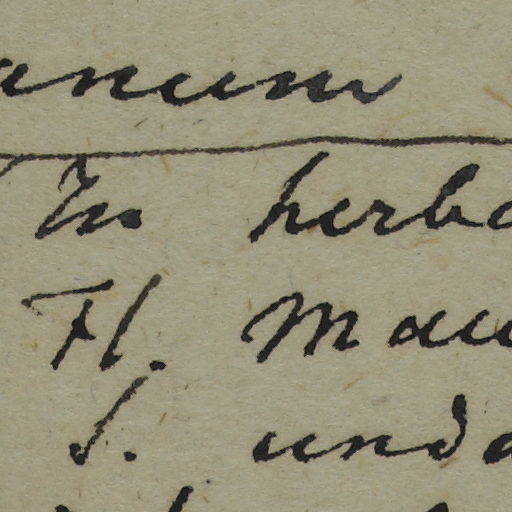 anum
In herba
Fl. Mau
S. unda